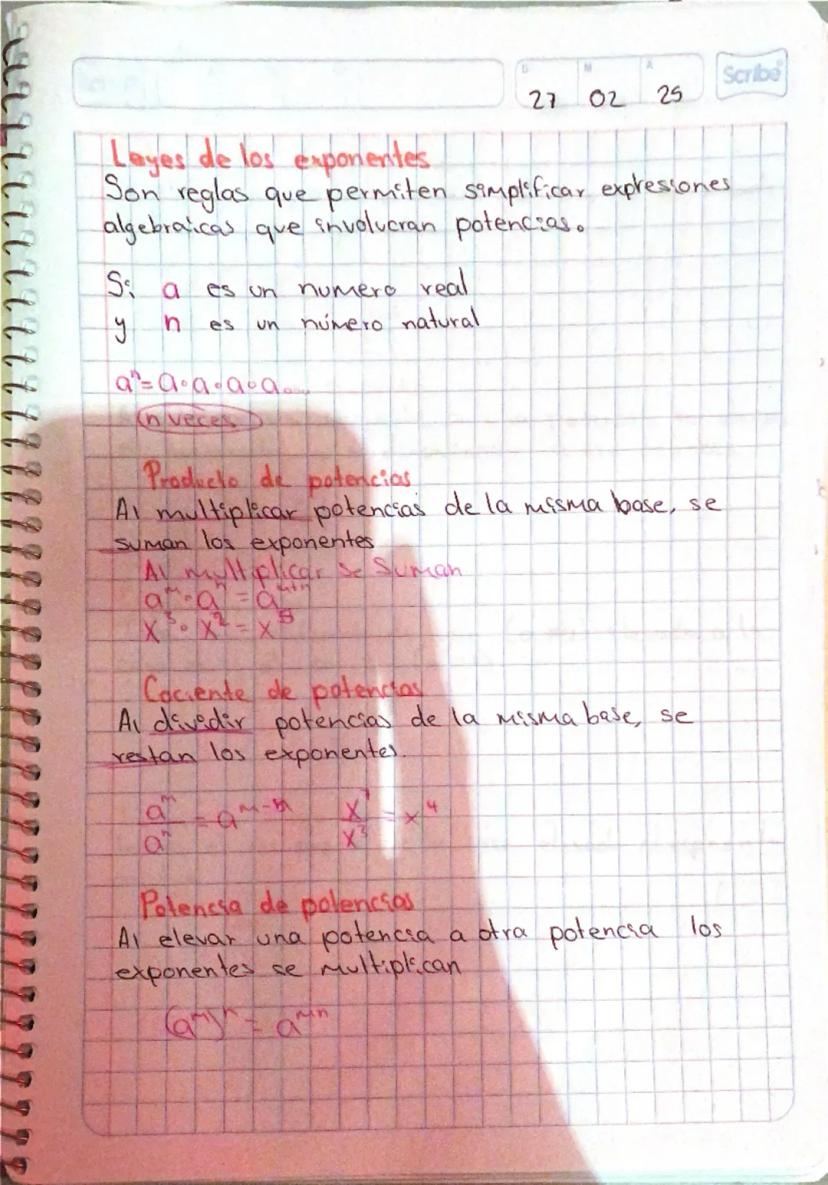 D M A
27 02 25 Scribe
Leyes de los exponentes
Son reglas que permiten simplificar expresiones
algebraicas que involucran potencias.
Si a es un numero real
y n es un número natural
aⁿ = a·a·a·a...
n veces
Producto de potencias
Al multiplicar potencias de la misma base, se
suman los exponentes
Al multiplicar se suman
aᵐ · aⁿ = aᵐ⁺ⁿ
x³ · x² = x⁵
Cociente de potencias
Al dividir potencias de la misma base, se
restan los exponentes.
aᵐ/aⁿ = aᵐ⁻ⁿ x⁷/x³ = x⁴
Potencia de potencias
Al elevar una potencia a otra potencia los
exponentes se multiplican
(aᵐ)ⁿ = aᵐⁿ